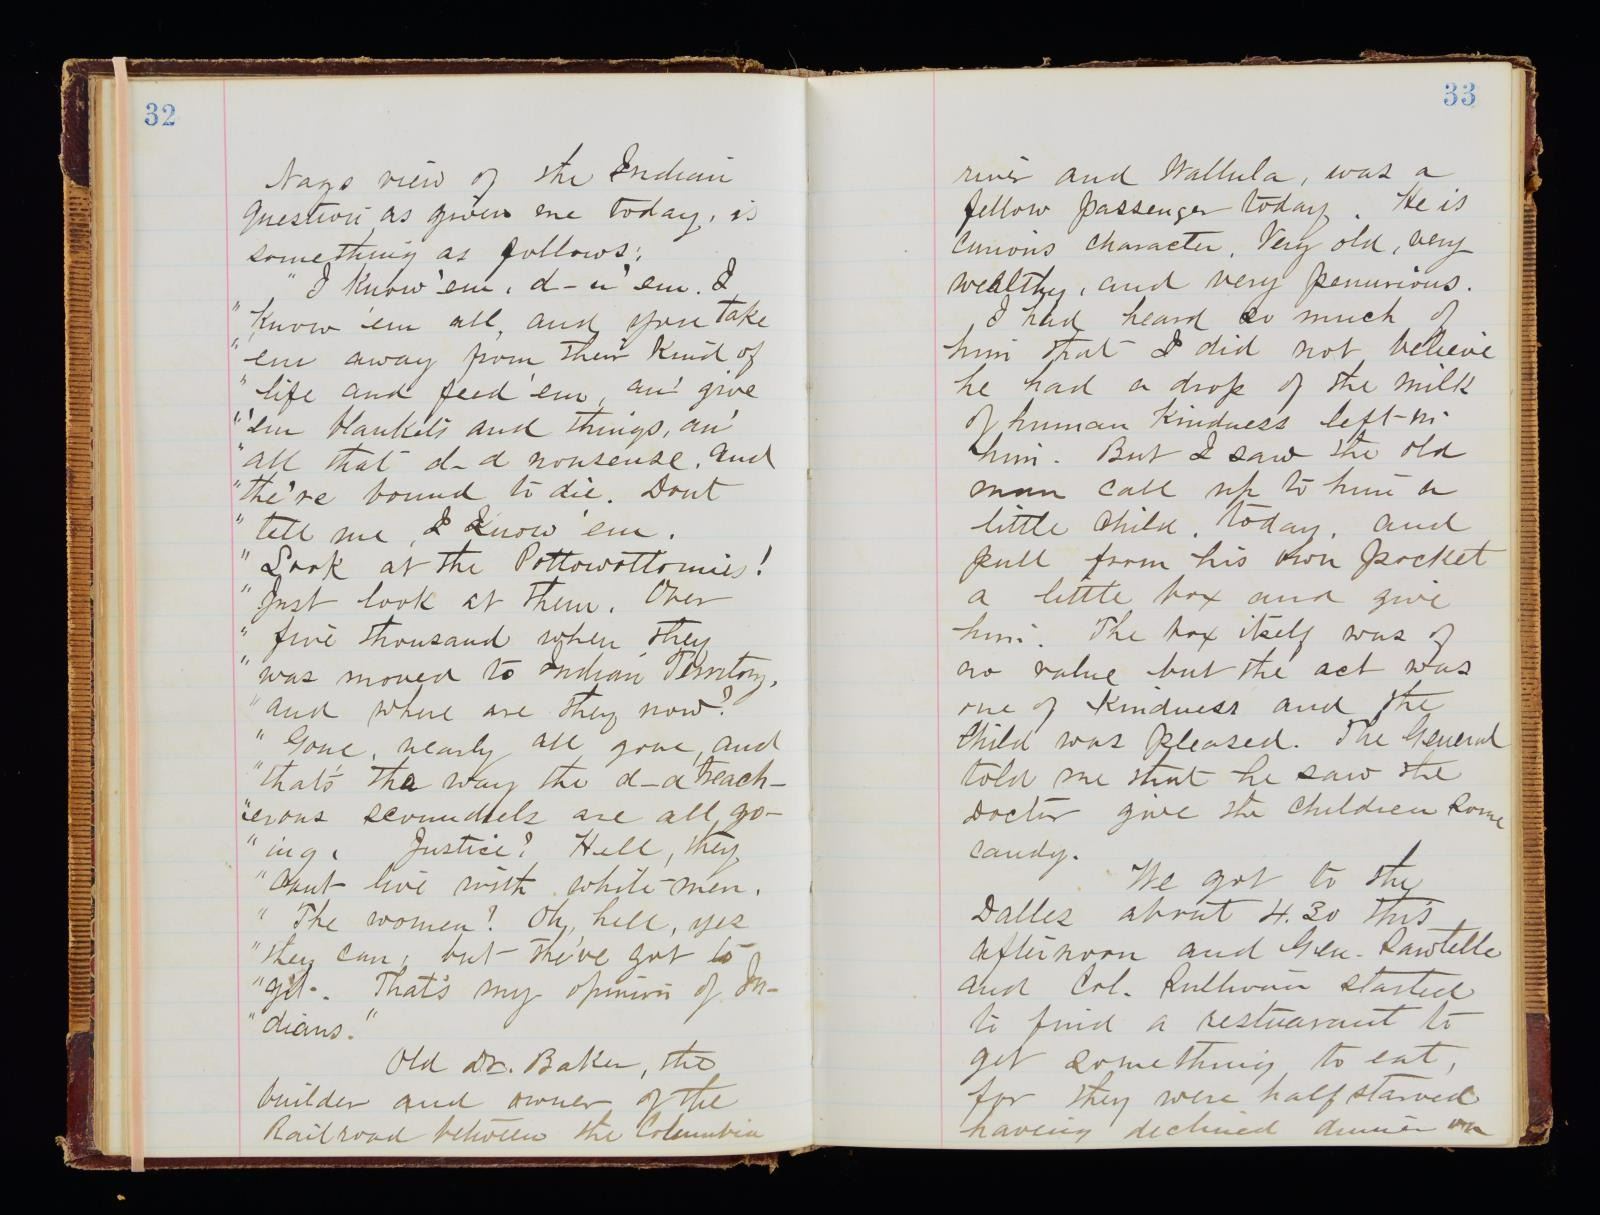 32
Nags view of the Indian
question as given me today, is
something as follows;
" I know 'em, d-n 'em. I
" know 'em all, and you take
" 'em away from their kind of
" life and feed 'em, an' give
" 'em blankets and things, an'
" all that d-d nonsense, and
" the're bound to die. Dont
" tell me, I know 'em.
" Look at the Pottowottomies!
" Just look at them. Over
" five thousand when they
" was moved to Indian Territory,
" and where are they now?
" Gone, nearly all gone, and
" that's the way the d-d treach-
" erous scoundrels are all go-
" ing. Justice? Hell, they
" cant live with white men.
" The women? Oh, hell, yes
" they can, but the've got to
" git. That's my opinion of In-
" dians."
Old Dr. Baker, the
builder and owner of the
Railroad between the Columbia
33
river and Wallula, was a
fellow passenger today. He is
curious character. Very old, very
wealthy, and very penurious.
I had heard so much of
him that I did not believe
he had a drop of the milk
of human kindness left in
him. But I saw the old
man call up to him a
little child, today, and
pull from his own pocket
a little box and give
him. The box itself was of
no value but the act was
one of kindness and the
child was pleased. The General
told me that he saw the
Doctor give the children some
candy.
We got to the
Dalles about 4.30 this
afternoon and Gen. Sawtelle
and Col. Sullivan started
to find a restuarant to
get something to eat,
for they were half starved
having declined dinner on